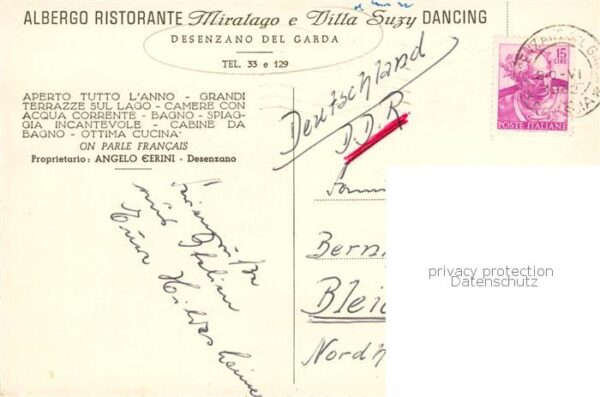 ALBERGO RISTORANTE Miralago e Villa Suzy DANCING
DESENZANO DEL GARDA
TEL. 33 e 129
APERTO TUTTO L'ANNO - GRANDI
TERRAZZE SUL LAGO - CAMERE CON
ACQUA CORRENTE - BAGNO - SPIAG-
GIA INCANTEVOLE - CABINE DA
BAGNO - OTTIMA CUCINA
ON PARLE FRANÇAIS
Proprietario: ANGELO CERINI - Desenzano
aus Italien
Eure Hildesheimer
15
LIRE
POSTE ITALIANE
Deutschland
D.D.R
Bern
Blei
Nordh
privacy protection
Datenschutz